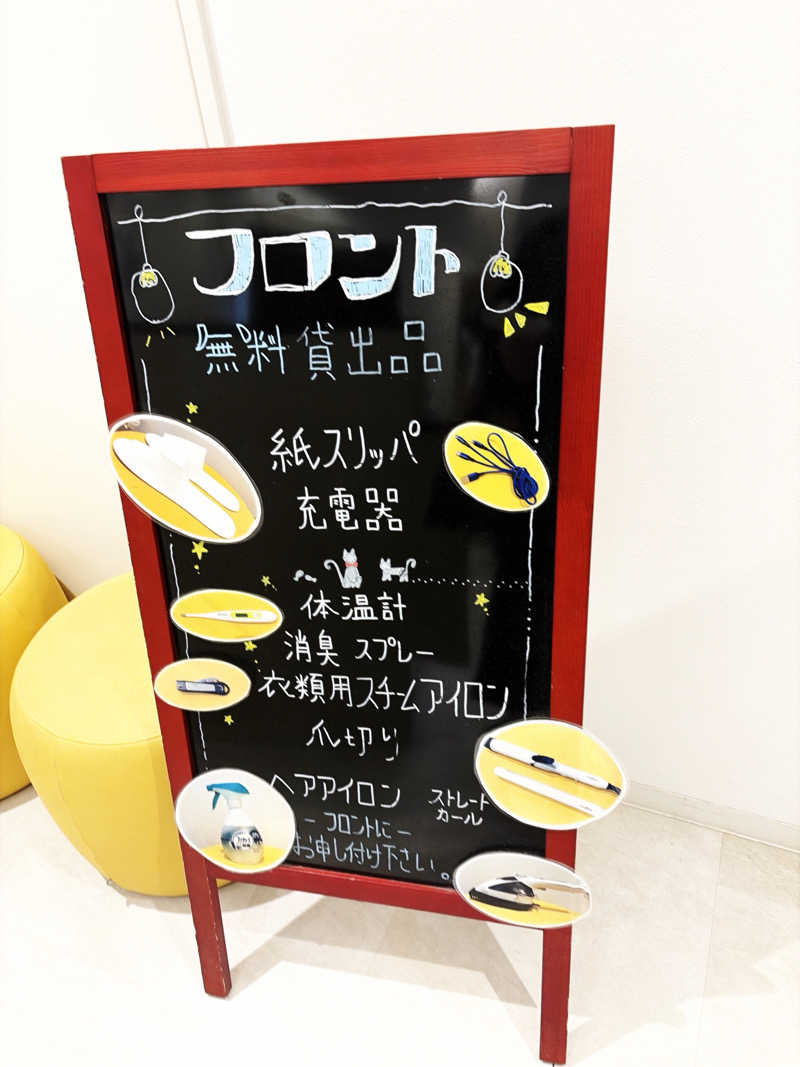 フロント
無料貸出品
紙スリッパ
充電器
体温計
消臭 スプレー
衣類用スチームアイロン
爪切り
ヘアアイロン ストレート
カール
－ フロントに －
お申し付け下さい。